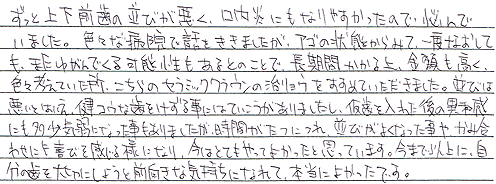 ずっと上下前歯の並びが悪く、口内炎にもなりやすかったので悩んで
いました。色々な病院で話をききましたが、アゴの状態からみて、一度なおして
も、またゆがんでくる可能性もあるとのことで、長期間かかる上、金額も高く、
色々考えていた所、こちらのセラミッククラウンの治りょうをすすめていただきました。並びは
悪いとはいえ、健コウな歯をけずる事にはていこうがありましたし、仮歯を入れた後の異和感
にも多少気弱になった事もありましたが、時間がたつにつれ、並びがよくなった事や、かみ合
わせにも喜びを感じる様になり、今はとてもやってよかったと思っています。今まで以上に、自
分の歯を大切にしようと前向きな気持ちになれて、本当によかったです。